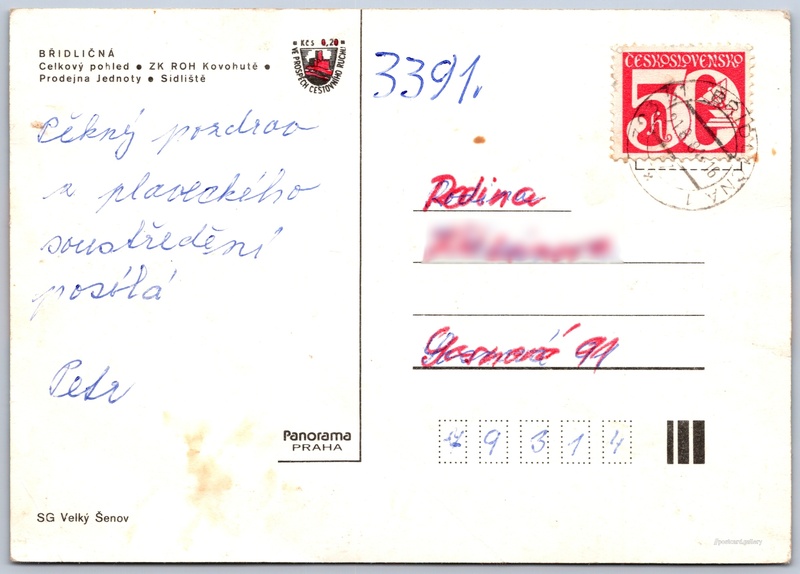 BŘIDLIČNÁ
Celkový pohled ● ZK ROH Kovohutě ●
Prodejna Jednoty ● Sídliště
Kčs 0,20
VE PROSPĚCH CESTOVNÍHO RUCHU
3391.
ČESKOSLOVENSKO
50h
Pěkný pozdrav
z plaveckého
soustředění
posílá
Petr
Rodina
91
79314
Panorama
PRAHA
SG Velký Šenov